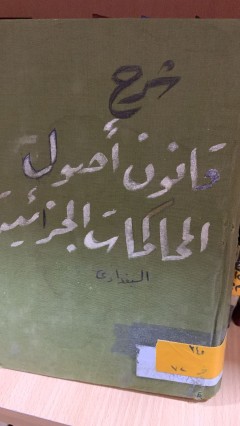 شرح
قانون أصول
المحاكمات الجزائية
البغدادي